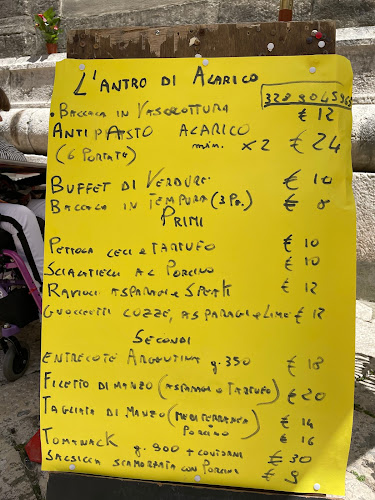 L'ANTRO DI ALARICO
BACCALA IN VASOCOTTURA € 12
ANTIPASTO ALARICO
(6 PORTATE) min. x2 € 24
BUFFET DI VERDURE € 10
BACCALA IN TEMPURA (3 Pz.) € 8
PRIMI
PETTOLA CECI e TARTUFO € 10
SCIALATIELLI AL PORCINO € 10
RAVIOLI ASPARAGI e SPECK € 12
GNOCCHETTI COZZE, ASPARAGI e LIME € 12
SECONDI
ENTRECOTE ARGENTINA g. 350 € 18
FILETTO DI MANZO (ASPARAGI e TARTUFO) € 20
TAGLIATA DI MANZO (MEDITERRANEA € 14
PORCINO € 16
TOMAHACK g. 900 + CONTORNI € 30
SALSICCIA SCAMORZATA CON PORCINI € 9